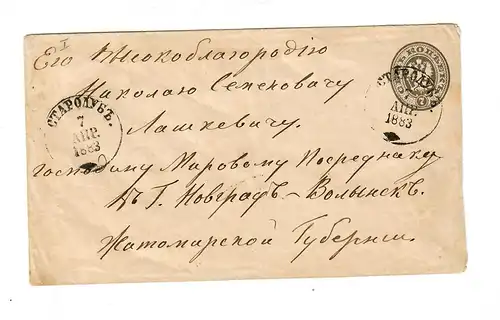 Его Высокоблагородію
Николаю Семеновичу
Лашкевичу.
господину Мировому Посреднику
въ Г. Новградъ-Волынскъ.
Житомирской Губерніи.
СТАРОДУБЪ.
7
АПР.
1883
СТАРОДУБЪ.
АПР.
1883